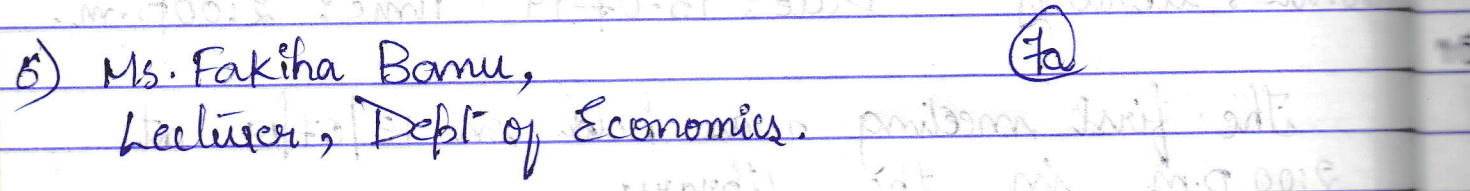 5) Ms. Fakiha Banu, Fa
Lecturer, Dept of Economics.